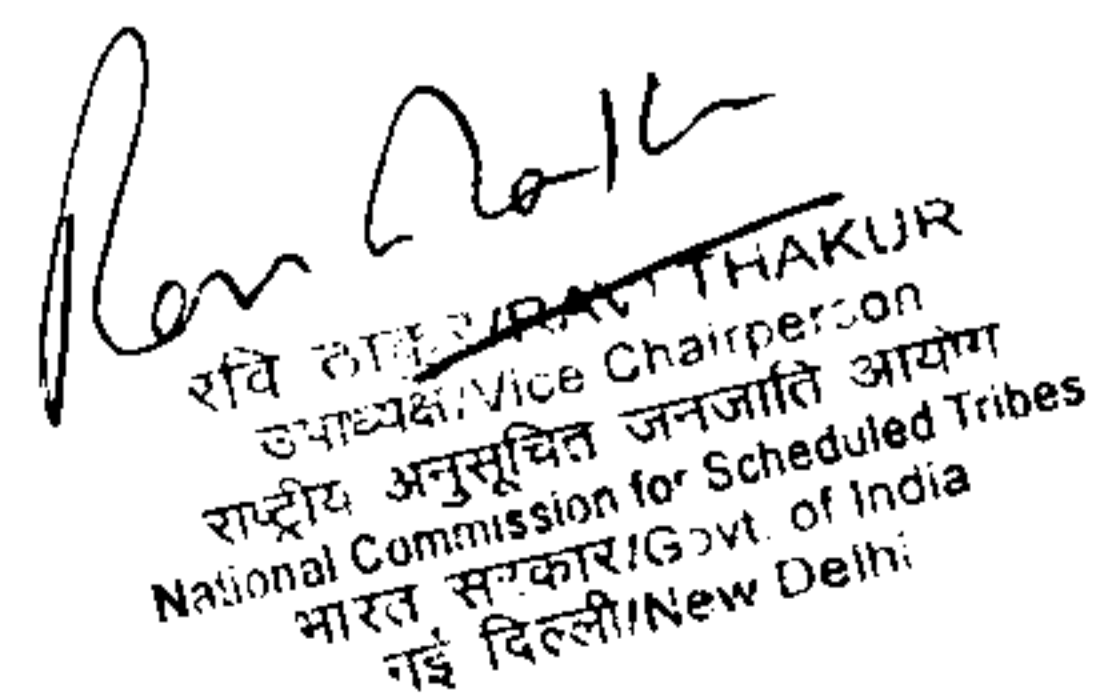 रवि ठाकुर/RAVI THAKUR
उपाध्यक्ष/Vice Chairperson
राष्ट्रीय अनुसूचित जनजाति आयोग
National Commission for Scheduled Tribes
भारत सरकार/Govt. of India
नई दिल्ली/New Delhi